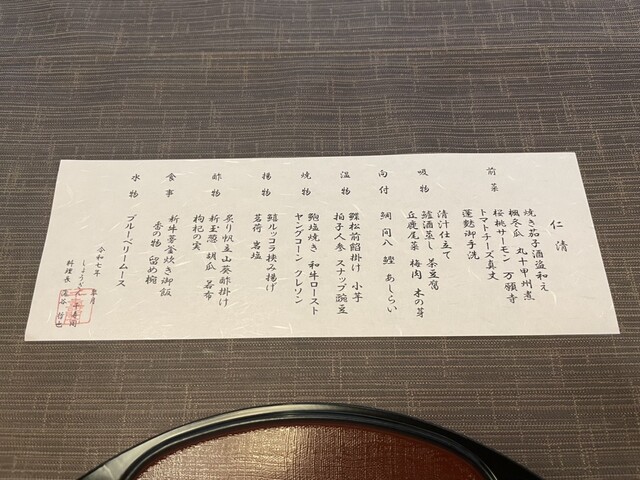 仁清
前菜
焼き茄子酒盗和え
楓冬瓜 丸十甲州煮
桜桃サーモン 万願寺
トマトチーズ真丈
蓮麩御手洗
吸物
清汁仕立て
鱧酒蒸し 茶豆腐
丘鹿尾菜 梅肉 木の芽
向付
鯛 間八 鰹 あしらい
温物
鰈松前餡掛け 小芋
拍子人参 スナップ豌豆
焼物
鮑塩焼き 和牛ロースト
ヤングコーン クレソン
揚物
鱚ルッコラ挟み揚げ
茗荷 岩塩
酢物
炙り帆立山葵酢掛け
新玉葱 胡瓜 若布
枸杞の実
食事
新牛蒡釜炊き御飯
香の物 留め椀
水物
ブルーベリームース
令和七年 皐月
しょうざん
料理長